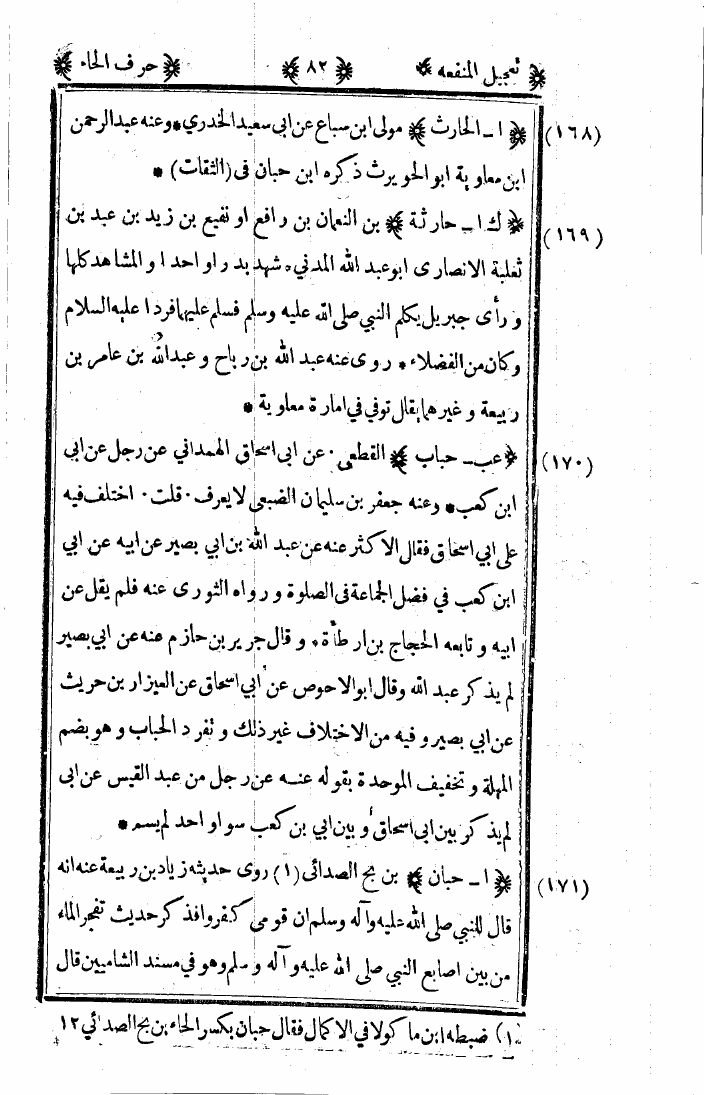 ﴿ تعجيل المنفعه ﴾ ﴿ ٨٢ ﴾ ﴿ حرف الحاء ﴾
(١٦٨) ﴿ ا ـ الحارث ﴾ مولى ابن سباع عن ابي سعيد الخدري * وعنه عبد الرحمن
ابن معاوية ابو الحويرث ذكره ابن حبان فى (الثقات) *
(١٦٩) ﴿ ك ا ـ حارثة ﴾ بن النعمان بن رافع او نفيع بن زيد بن عبد بن
ثعلبة الانصارى ابو عبد الله المدني * شهد بدرا واحدا والمشاهد كلها
ورأى جبريل يكلم النبي صلى الله عليه وسلم فسلم عليهما فردا عليه السلام
وكان من الفضلاء * روى عنه عبد الله بن رباح وعبد الله بن عامر بن
ربيعة وغيرهما يقال توفي في امارة معاوية *
(١٧٠) ﴿ عب ـ حباب ﴾ القطعى ٠ عن ابى اسحاق الهمداني عن رجل عن ابي
ابن كعب * وعنه جعفر بن سليمان الضبعى لا يعرف ٠ قلت ٠ اختلف فيه
على ابي اسحاق فقال الاكثر عنه عن عبد الله بن ابي بصير عن ابيه عن ابي
ابن كعب في فضل الجماعة فى الصلوة ورواه الثورى عنه فلم يقل عن
ابيه وتابعه الحجاج بن ارطأة * وقال جرير بن حازم عنه عن ابي بصير
لم يذكر عبد الله وقال ابو الاحوص عن ابي اسحاق عن العيزار بن حريث
عن ابي بصير وفيه من الاختلاف غير ذلك وتفرد الحباب وهو بضم
المهملة وتخفيف الموحدة بقوله عنه عن رجل من عبد القيس عن ابى
لم يذكر بين ابى اسحاق وبين ابي بن كعب سوا واحد لم يسم *
(١٧١) ﴿ ا ـ حبان ﴾ بن بح الصدائى (١) روى حديثه زياد بن ربيعة عنه انه
قال للنبي صلى الله عليه وآله وسلم ان قومى كفروا فذكر حديث تفجر الماء
من بين اصابع النبي صلى الله عليه وآله وسلم وهو في مسند الشاميين قال
(١) ضبطه ابن ماكولا في الاكمال فقال حبان بكسر الحاء بن بح الصدائي ١٢